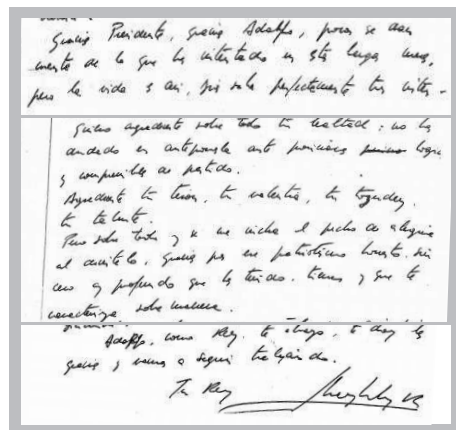 Gracias Presidente, gracias Adolfo, pocos se dan
cuenta de lo que has intentado en este largo
pero la vida es así, Rey sabe perfectamente tus
agradecerte sobre todo tu lealtad: no has
dudado en anteponerla ante posiciones
y comprensibles de partido.
Agradecerte tu tesón, tu valentía, tu tozudez,
tu talante.
Pero sobre todo, y se me hincha el pecho de alegría
al decírtelo, gracias por ese patriotismo honesto,
y profundo que has tenido, tienes y que te
caracteriza sobre manera.
Adolfo, como Rey, te abrazo, te doy las
gracias y vamos a seguir trabajando.
Tu Rey